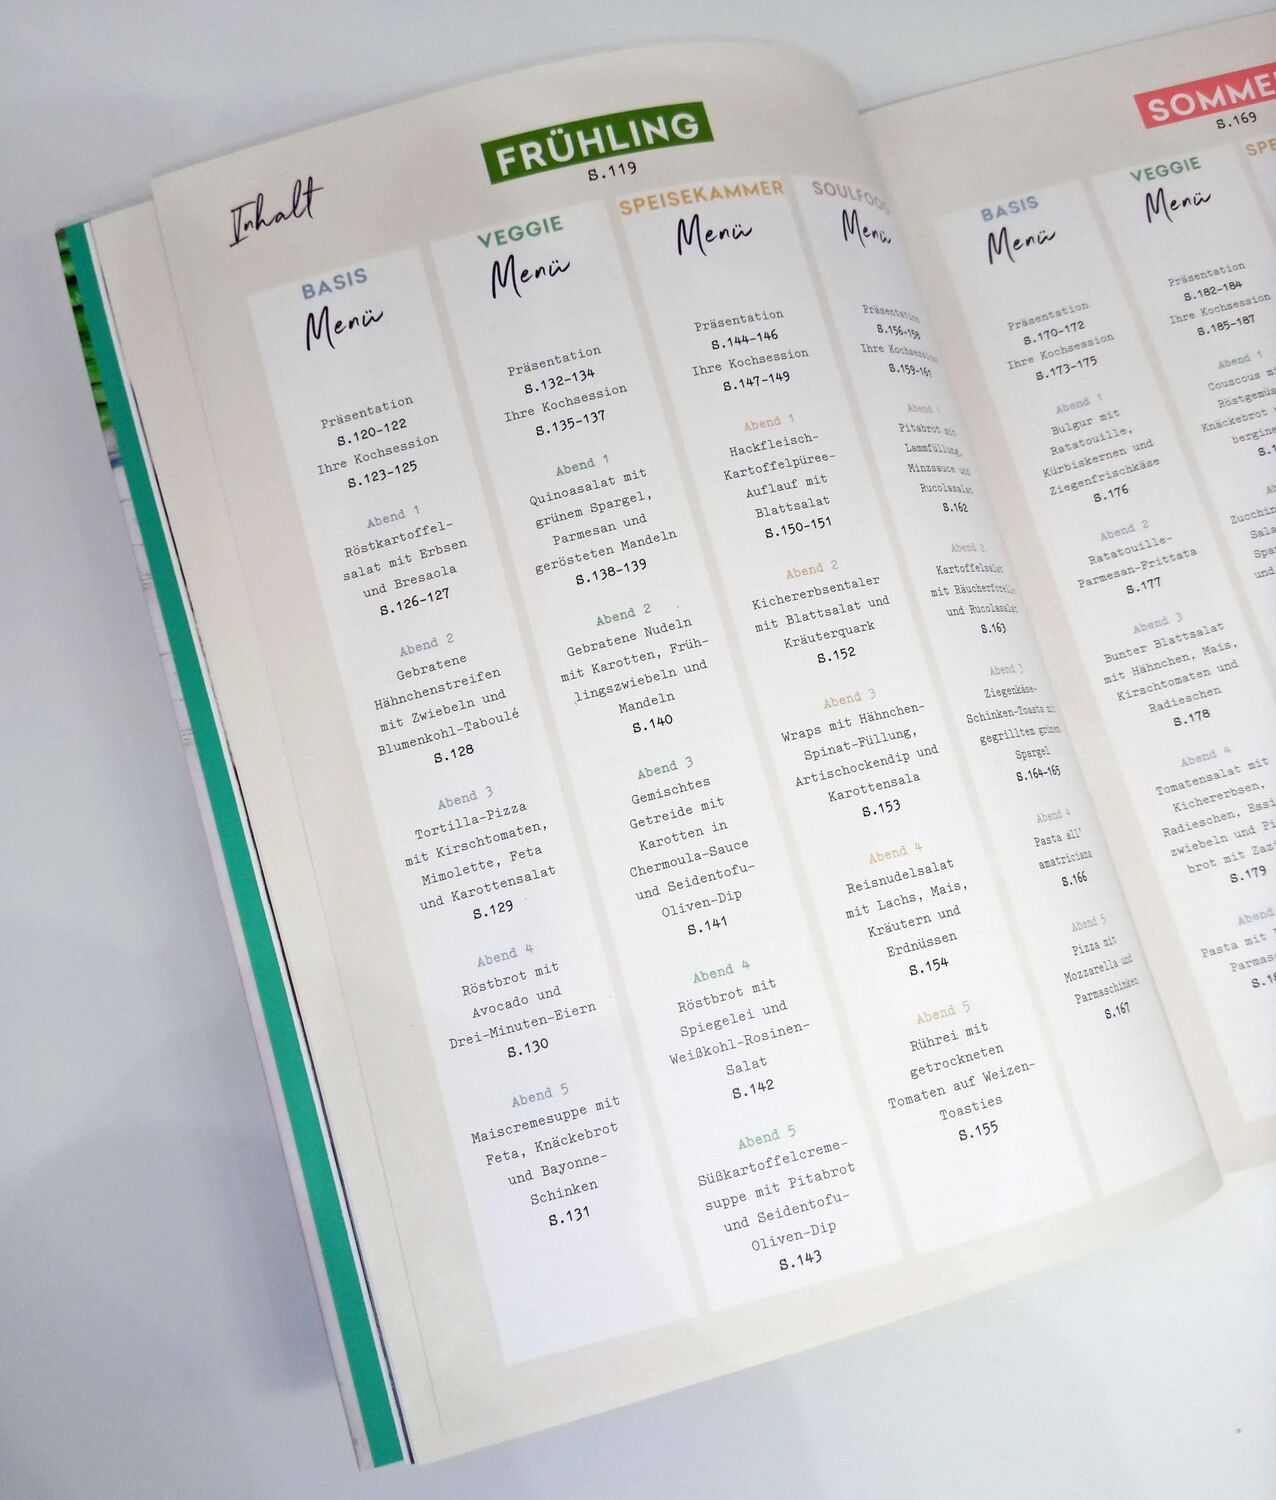 Inhalt
FRÜHLING
S.119
BASIS
Menü
Präsentation
S.120-122
Ihre Kochsession
S.123-125
Abend 1
Röstkartoffel-
salat mit Erbsen
und Bresaola
S.126-127
Abend 2
Gebratene
Hähnchenstreifen
mit Zwiebeln und
Blumenkohl-Taboulé
S.128
Abend 3
Tortilla-Pizza
mit Kirschtomaten,
Mimolette, Feta
und Karottensalat
S.129
Abend 4
Röstbrot mit
Avocado und
Drei-Minuten-Eiern
S.130
Abend 5
Maiscremesuppe mit
Feta, Knäckebrot
und Bayonne-
Schinken
S.131
VEGGIE
Menü
Präsentation
S.132-134
Ihre Kochsession
S.135-137
Abend 1
Quinoasalat mit
grünem Spargel,
Parmesan und
gerösteten Mandeln
S.138-139
Abend 2
Gebratene Nudeln
mit Karotten, Früh-
lingszwiebeln und
Mandeln
S.140
Abend 3
Gemischtes
Getreide mit
Karotten in
Chermoula-Sauce
und Seidentofu-
Oliven-Dip
S.141
Abend 4
Röstbrot mit
Spiegelei und
Weißkohl-Rosinen-
Salat
S.142
Abend 5
Süßkartoffelcreme-
suppe mit Pitabrot
und Seidentofu-
Oliven-Dip
S.143
SPEISEKAMMER
Menü
Präsentation
S.144-146
Ihre Kochsession
S.147-149
Abend 1
Hackfleisch-
Kartoffelpüree-
Auflauf mit
Blattsalat
S.150-151
Abend 2
Kichererbsentaler
mit Blattsalat und
Kräuterquark
S.152
Abend 3
Wraps mit Hähnchen-
Spinat-Füllung,
Artischockendip und
Karottensala
S.153
Abend 4
Reisnudelsalat
mit Lachs, Mais,
Kräutern und
Erdnüssen
S.154
Abend 5
Rührei mit
getrockneten
Tomaten auf Weizen-
Toasties
S.155
SOULFOOD
Menü
Präsentation
S.156-158
Ihre Kochsession
S.159-161
Abend 1
Pitabrot mit
Lammfüllung,
Minzsauce und
Rucolasalat
S.162
Abend 2
Kartoffelsalat
mit Räucherforelle
und Rucolasalat
S.163
Abend 3
Ziegenkäse-
Schinken-Toasts mit
gegrilltem grünen
Spargel
S.164-165
Abend 4
Pasta all'
amatriciana
S.166
Abend 5
Pizza mit
Mozzarella und
Parmaschinken
S.167
SOMME
S.169
BASIS
Menü
Präsentation
S.170-172
Ihre Kochsession
S.173-175
Abend 1
Bulgur mit
Ratatouille,
Kürbiskernen und
Ziegenfrischkäse
S.176
Abend 2
Ratatouille-
Parmesan-Frittata
S.177
Abend 3
Bunter Blattsalat
mit Hähnchen, Mais,
Kirschtomaten und
Radieschen
S.178
Abend 4
Tomatensalat mit
Kichererbsen,
Radieschen, Essi
zwiebeln und Pi
brot mit Zazi
S.179
Abend
Pasta mit
Parmas
VEGGIE
Menü
Präsentation
S.182-184
Ihre Kochsession
S.185-187
Abend 1
Couscous mi
Röstgemüs
Knäckebrot
bergine
Zucchin
Sala
Spa
und
SPE